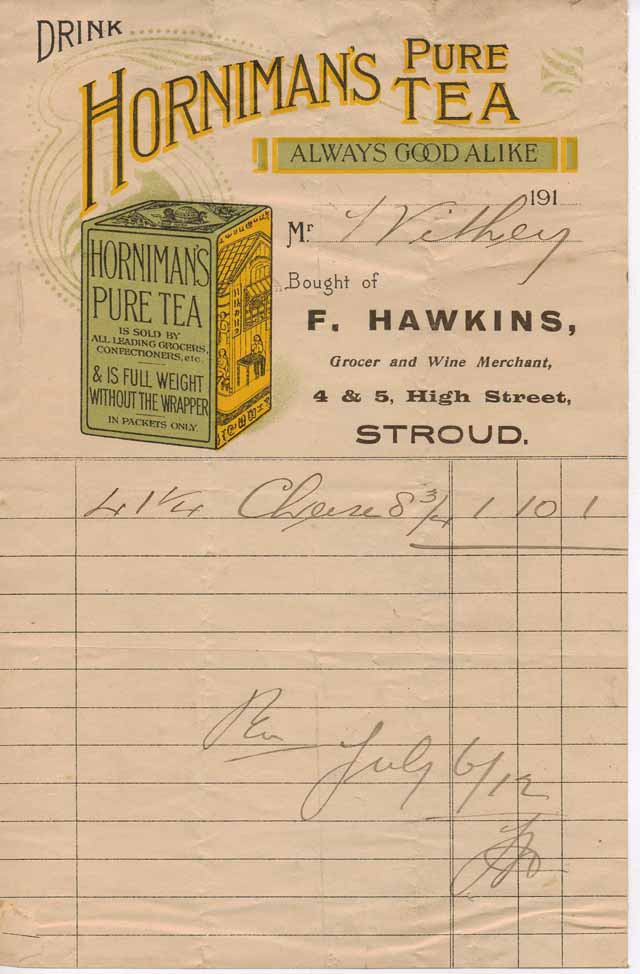 DRINK
HORNIMAN'S PURE TEA
ALWAYS GOOD ALIKE
HORNIMAN'S
PURE TEA
IS SOLD BY
ALL LEADING GROCERS,
CONFECTIONERS, etc.
& IS FULL WEIGHT
WITHOUT THE WRAPPER
IN PACKETS ONLY.
191
Mr Withey
Bought of
F. HAWKINS,
Grocer and Wine Merchant,
4 & 5, High Street,
STROUD.
41 1/4 Cheese 8 3/4 1 10 1
July 6/12